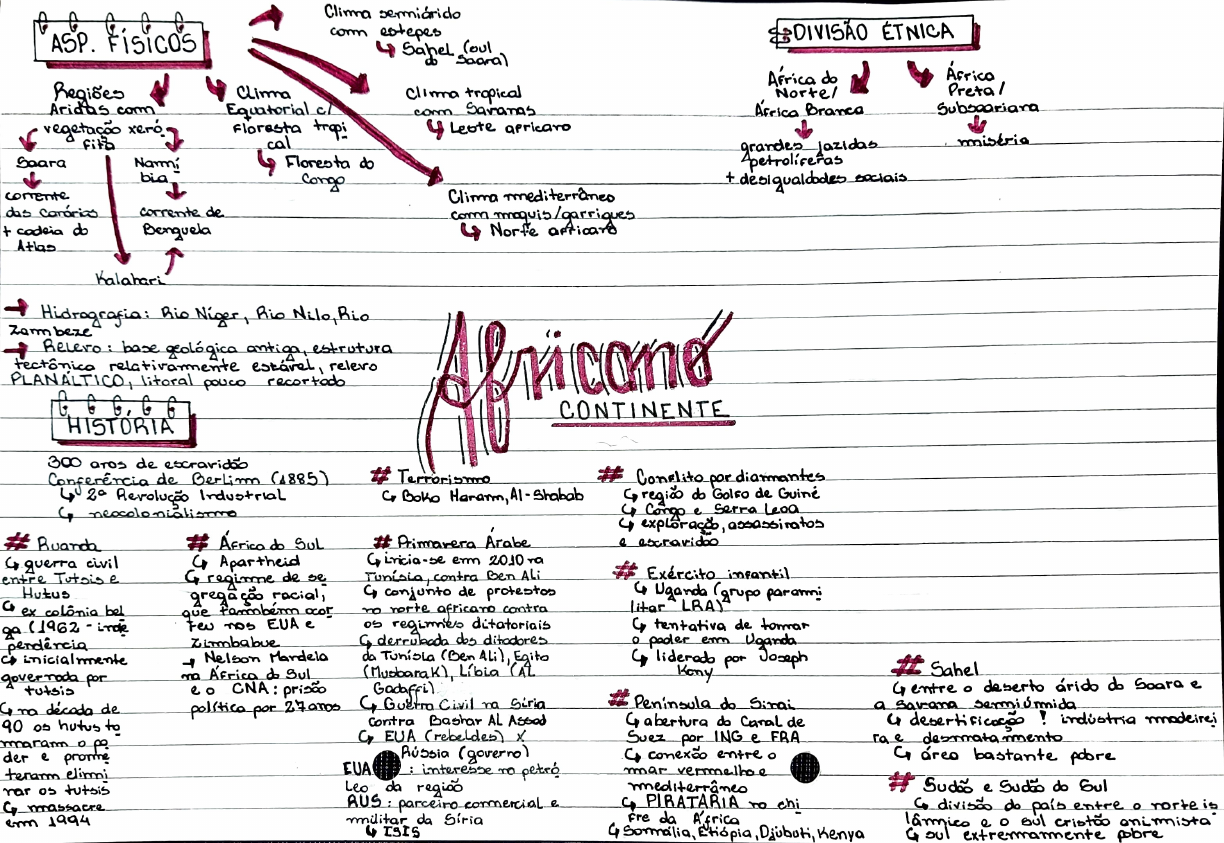 ASP. FÍSICOS
Regiões
Áridas com
vegetação xeró
fita
Saara
corrente
das Canárias
+ cadeia do
Atlas
Namí
bia
corrente de
Benguela
Kalahari
Clima
Equatorial c/
Floresta tropi
cal
Floresta do
Congo
Clima semiárido
com estepes
Sahel (sul
do Saara)
Clima tropical
com Savanas
Leste africano
Clima mediterrâneo
com maquis/garrigues
Norte africano
DIVISÃO ÉTNICA
África do
Norte/
África Branca
grandes jazidas
petrolíferas
+ desigualdades sociais
África
Preta/
Subsaariana
miséria
→ Hidrografia: Rio Níger, Rio Nilo, Rio
Zambeze
→ Relevo: base geológica antiga, estrutura
tectônica relativamente estável, relevo
PLANÁLTICO, litoral pouco recortado
Africano
CONTINENTE
HISTÓRIA
300 anos de escravidão
Conferência de Berlim (1885)
↳ 2ª Revolução Industrial
↳ neocolonialismo
# Ruanda
↳ guerra civil
entre Tutsis e
Hutus
↳ ex colônia bel
ga (1962 - inde
pendência
↳ inicialmente
governada por
tutsis
↳ na década de
90 os hutus to
maram o po
der e prome
teram elimi
nar os tutsis
↳ massacre
em 1994
# África do Sul
↳ Apartheid
↳ regime de se
gregação racial,
que também ocor
reu nos EUA e
Zimbabue
→ Nelson Mandela
na África do Sul
e o CNA: prisão
política por 27 anos
# Terrorismo
↳ Boko Haram, Al-Shabab
# Primavera Árabe
↳ inicia-se em 2010 na
Tunísia, contra Ben Ali
↳ conjunto de protestos
no norte africano contra
os regimes ditatoriais
↳ derrubada dos ditadores
da Tunísia (Ben Ali), Egito
(Musbarak), Líbia (AL
Gadaffi)
↳ Guerra Civil na Síria
contra Bashar Al Assad
↳ EUA (rebeldes) X
Rússia (governo)
EUA : interesse no petró
leo da região
RUS: parceiro comercial e
militar da Síria
↳ ISIS
# Conflito por diamantes
↳ região do Golfo de Guiné
↳ Congo e Serra Leoa
↳ exploração, assassinatos
e escravidão
# Exército infantil
↳ Uganda (grupo parami
litar LRA)
↳ tentativa de tomar
o poder em Uganda
↳ liderado por Joseph
Kony
# Península do Sinai
↳ abertura do Canal de
Suez por ING e FRA
↳ conexão entre o
mar vermelho e
mediterrâneo
↳ PIRATARIA no chi
fre da África
↳ Somália, Etiópia, Djibuti, Kenya
# Sahel
↳ entre o deserto árido do Saara e
a savana semiúmida
↳ desertificação ! indústria madeirei
ra e desmatamento
↳ área bastante pobre
# Sudão e Sudão do Sul
↳ divisão do país entre o norte is
lâmico e o sul cristão animista
↳ sul extremamente pobre